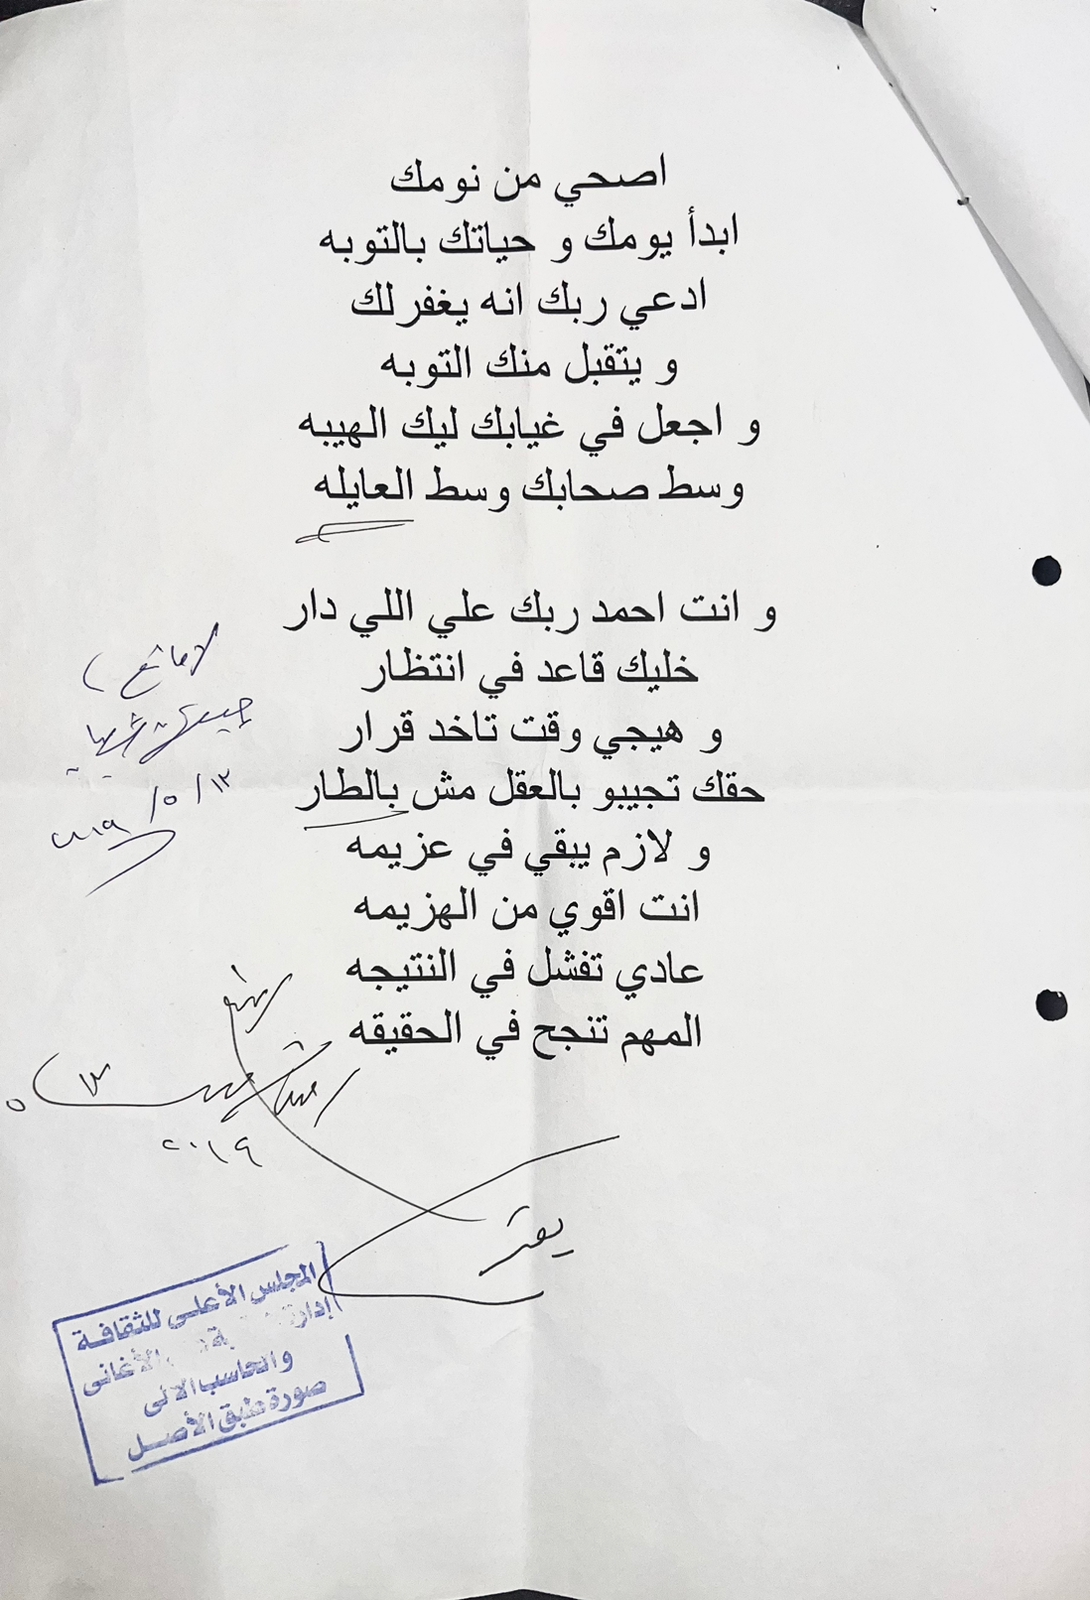 اصحي من نومك
ابدأ يومك و حياتك بالتوبه
ادعي ربك انه يغفر لك
و يتقبل منك التوبه
و اجعل في غيابك ليك الهيبه
وسط صحابك وسط العايله
و انت احمد ربك علي اللي دار
خليك قاعد في انتظار
و هيجي وقت تاخد قرار
حقك تجيبو بالعقل مش بالطار
و لازم يبقي في عزيمه
انت اقوي من الهزيمه
عادي تفشل في النتيجه
المهم تنجح في الحقيقه
لا مانع
١٣ / ٥ / ٢٠١٩
٢٠١٩
المجلس الأعلى للثقافة
إدارة الأغانى
والحاسب الآلى
صورة طبق الأصل